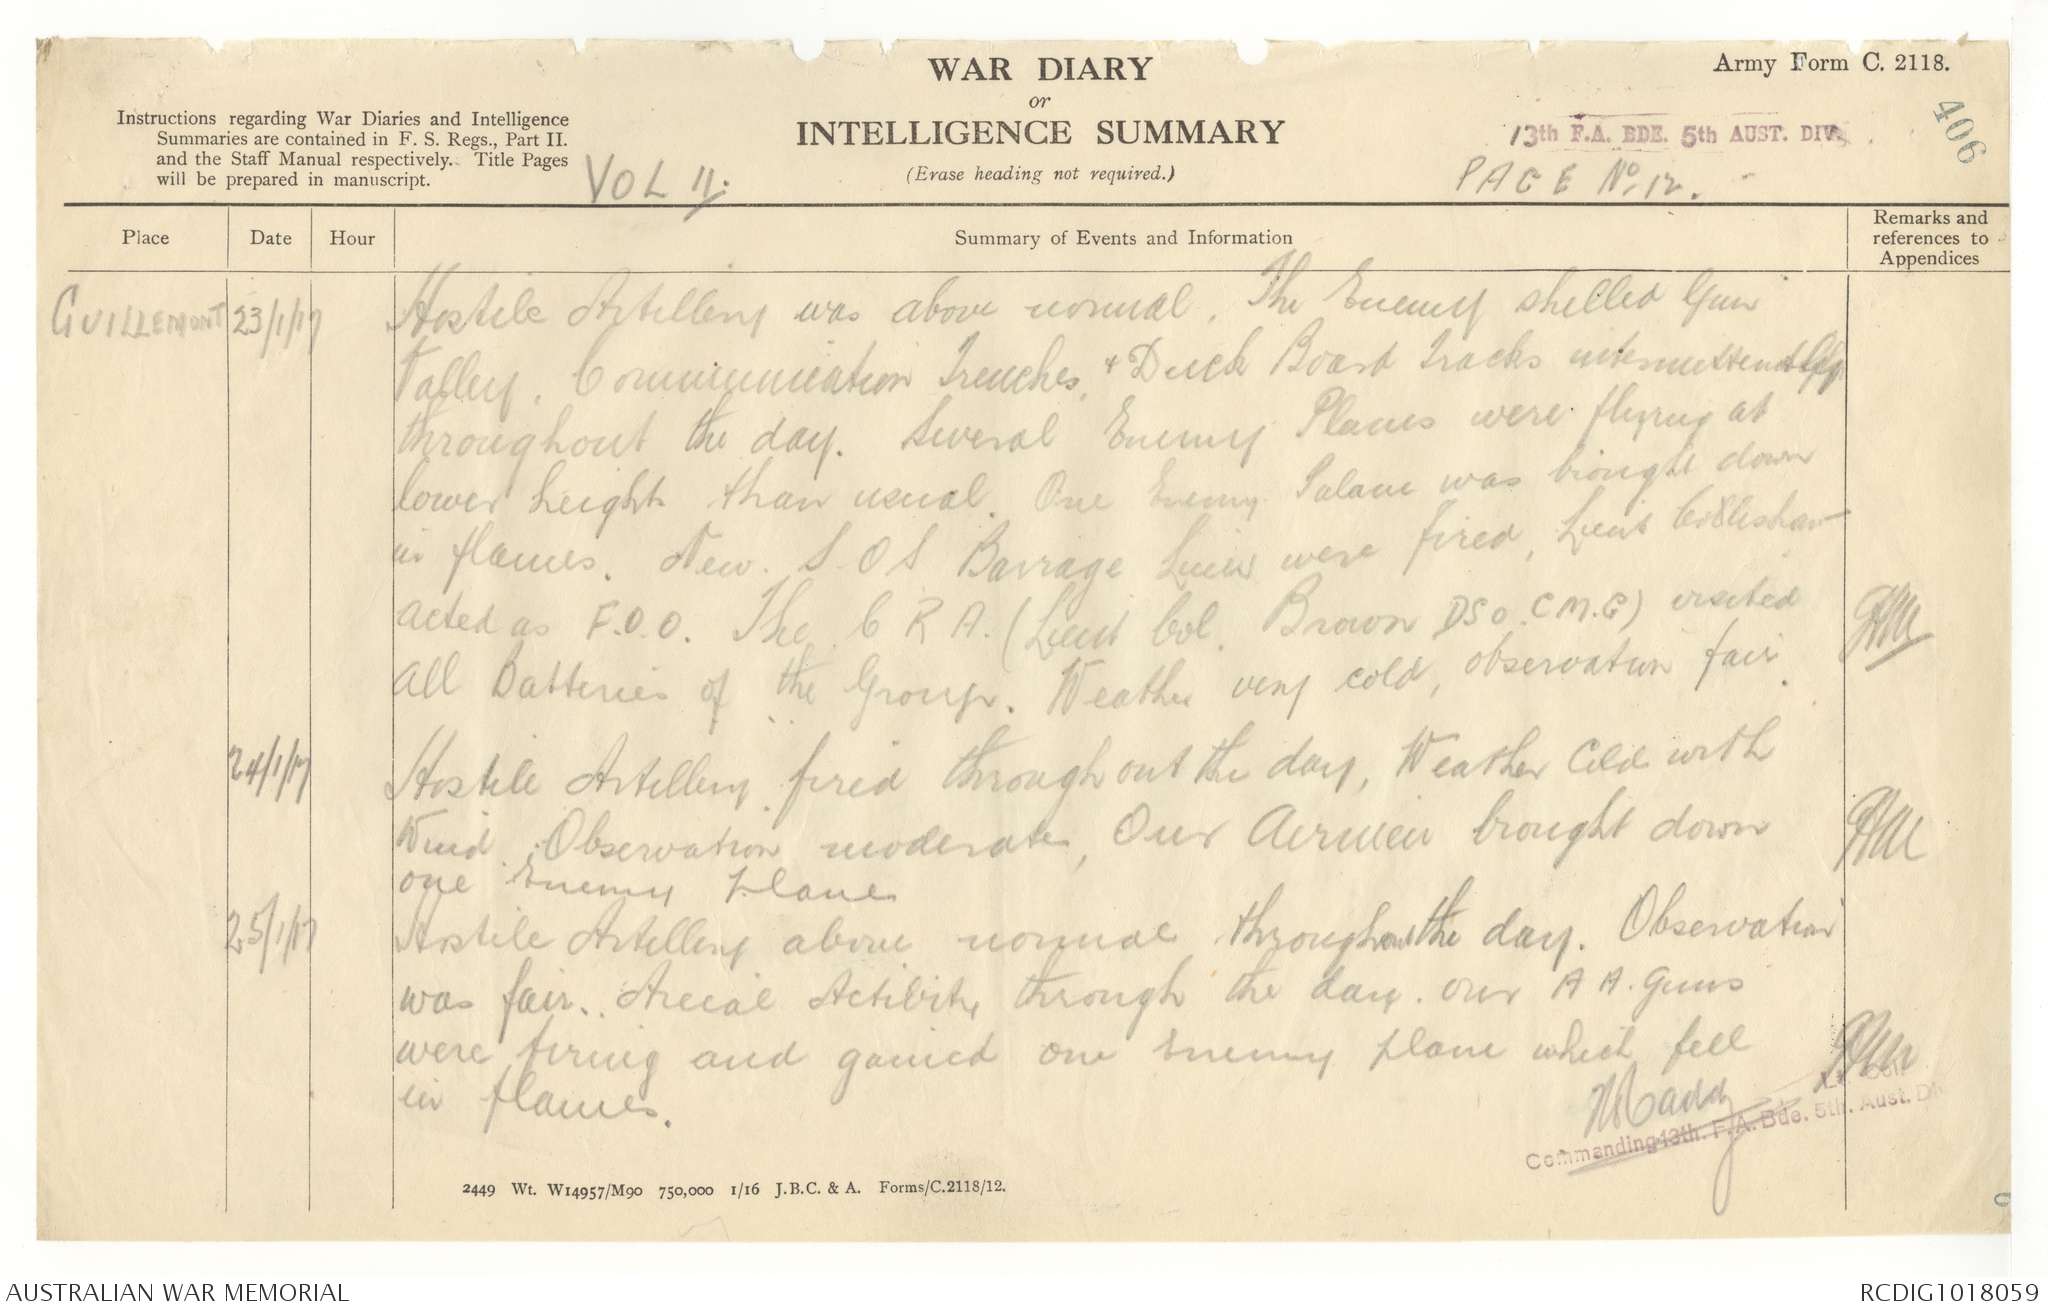 WAR DIARY
or
INTELLIGENCE SUMMARY
(Erase heading not required.)
Army Form C. 2118.
406
Instructions regarding War Diaries and Intelligence
Summaries are contained in F. S. Regs., Part II.
and the Staff Manual respectively. Title Pages
will be prepared in manuscript.
VOL II.
13th F.A. BDE. 5th AUST. DIV.
PAGE No. 12.
Place
Date
Hour
Summary of Events and Information
Remarks and
references to
Appendices
GUILLEMONT 23/1/17 Hostile Artillery was above normal. The Enemy shelled Gun
Valley, Communication Trenches, & Duck Board Tracks intermittently
throughout the day. Several Enemy Planes were flying at
lower height than usual. One Enemy Palane was brought down
in flames. New S.O.S Barrage Lines were fired, Lieut
acted as F.O.O. The C R A. (Lieut Col. Brown DSO. C.M.G) visited
all Batteries of the Group. Weather very cold, observation fair.
24/1/17 Hostile Artillery fired throughout the day, Weather Cold with
Wind. Observation moderate, Our Airmen brought down
one Enemy plane
25/1/17 Hostile Artillery above normal throughout the day. Observation
was fair. Areial Activity through the day. our A A. Guns
were firing and gained one Enemy plane which fell
in flames.
Lt. Col.
Commanding 13th. F.A. Bde. 5th. Aust. Div
2449 Wt. W14957/M90 750,000 1/16 J.B.C. & A. Forms/C.2118/12.
AUSTRALIAN WAR MEMORIAL
RCDIG1018059